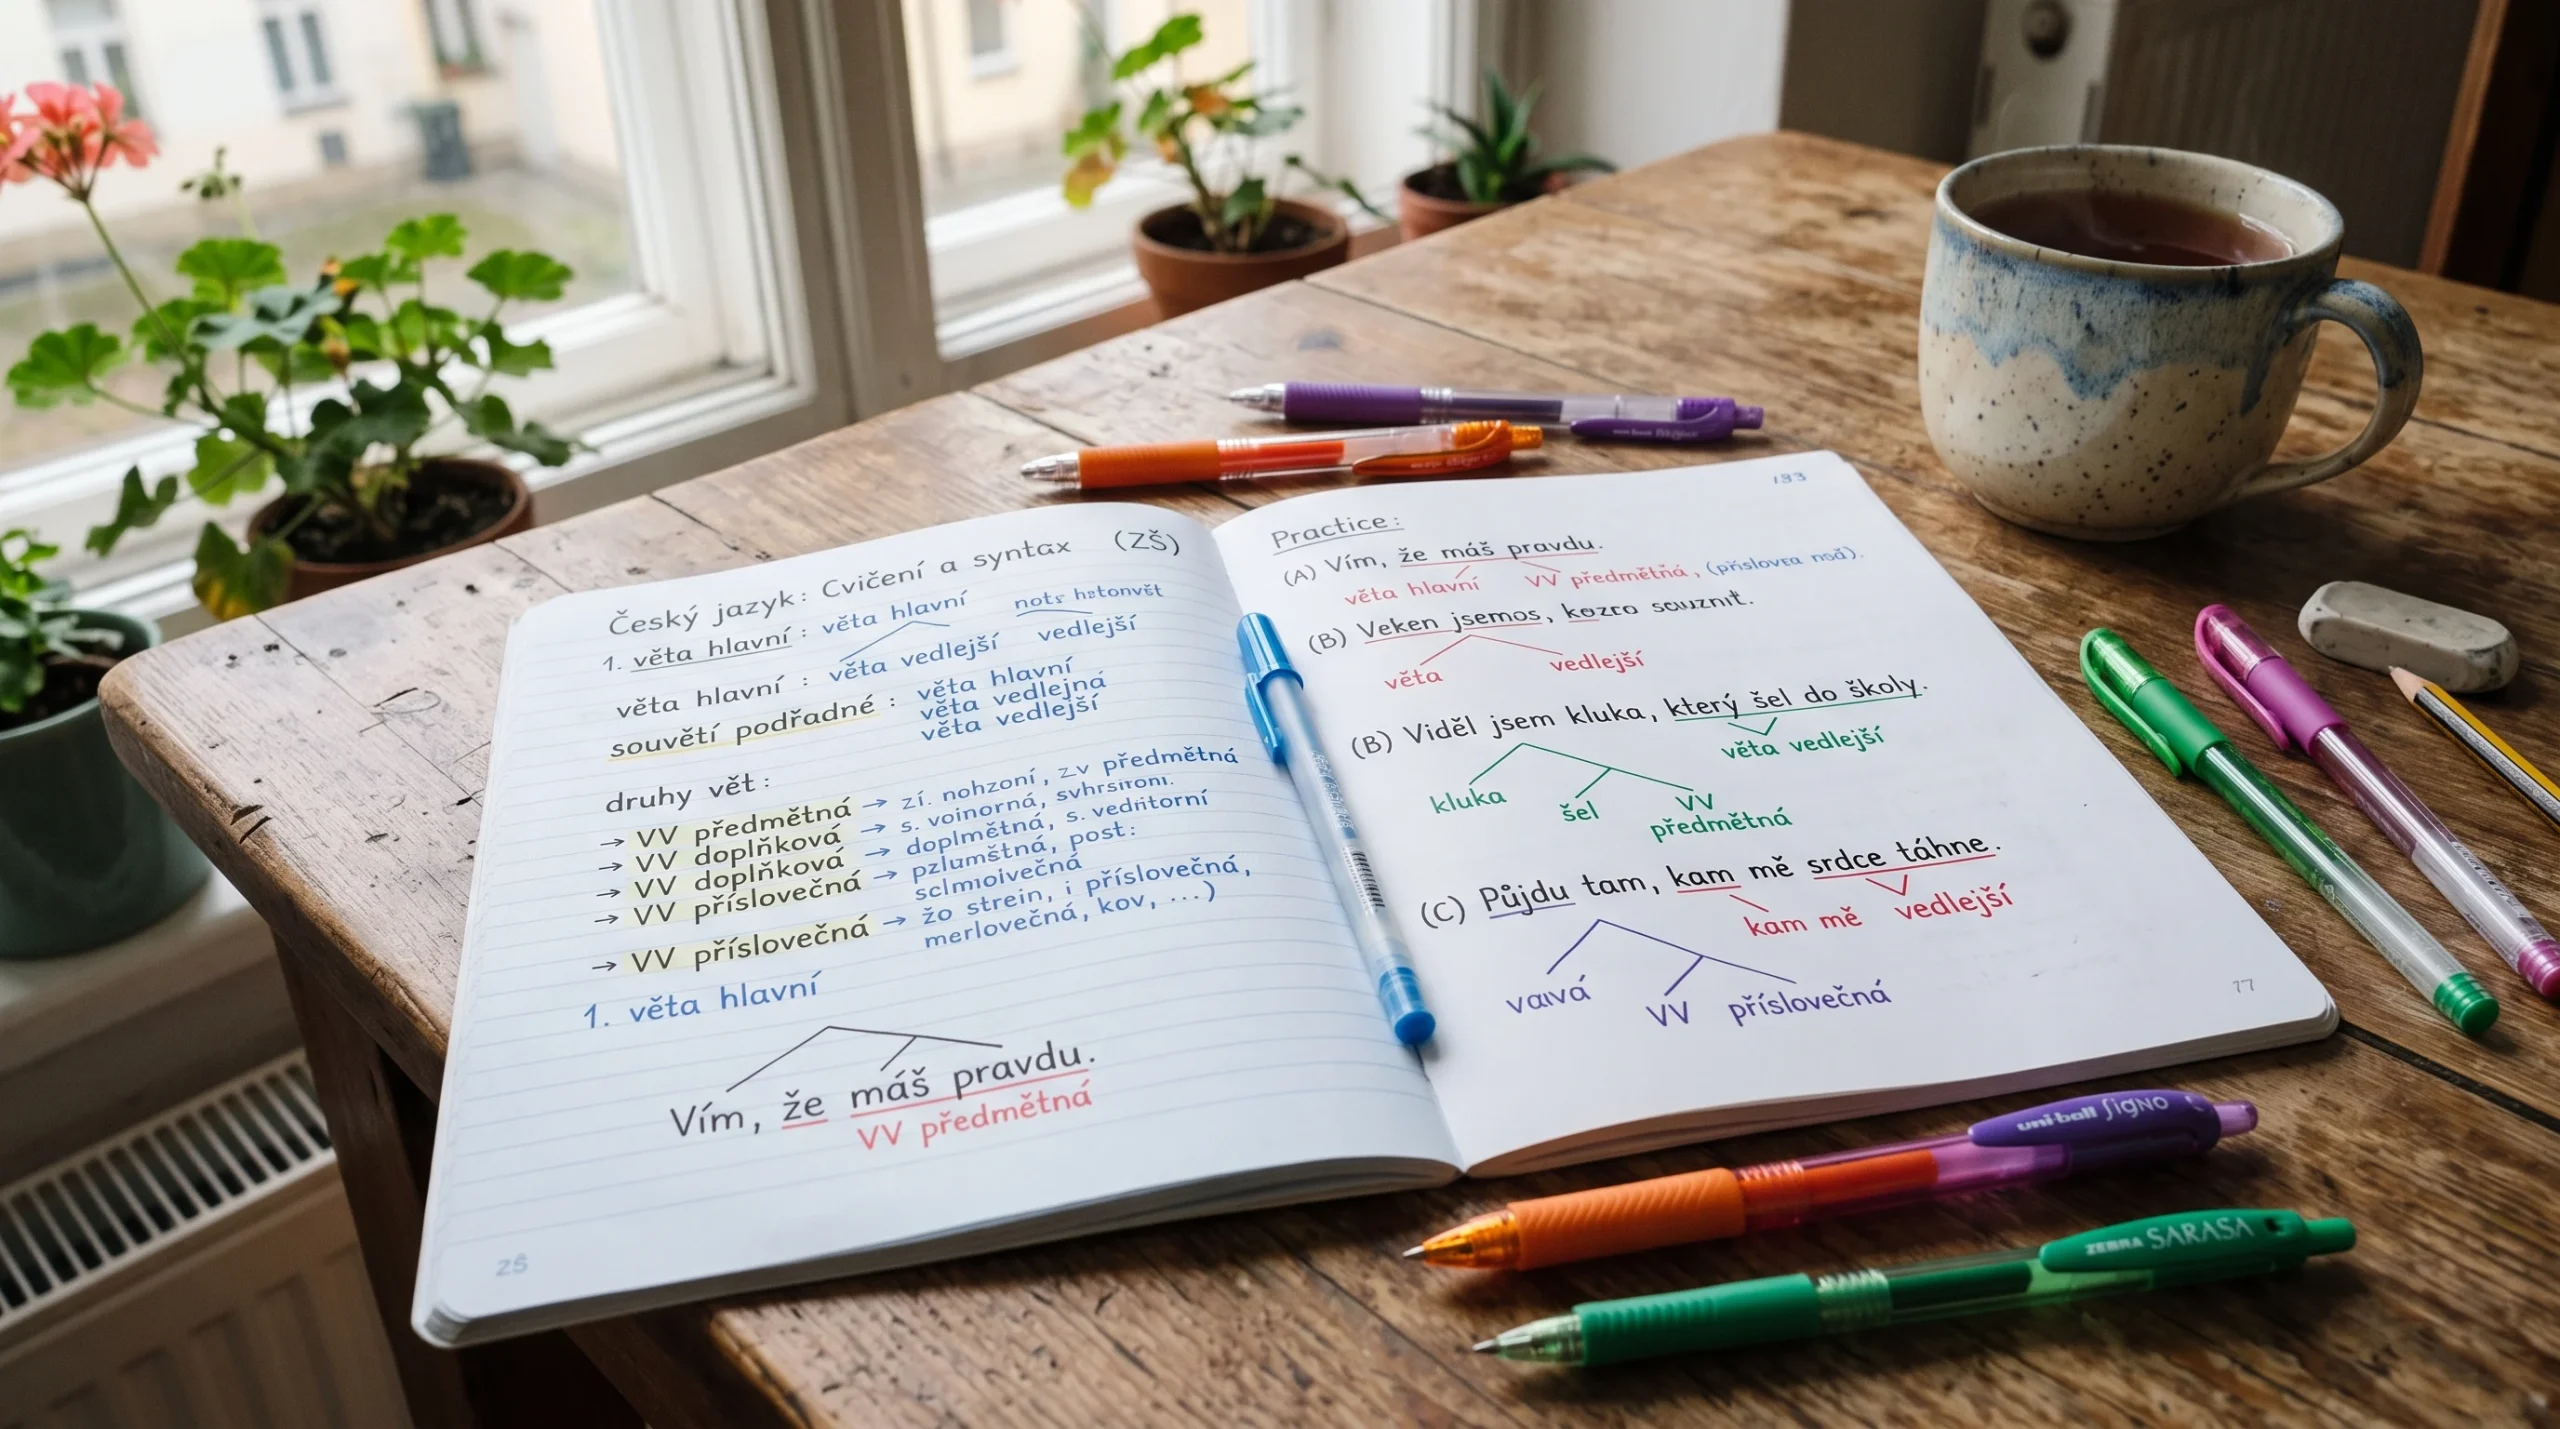 Český jazyk: Cvičení a syntax (ZŠ)
1. věta hlavní : věta hlavní
věta hlavní : věta vedlejší vedlejší
souvětí podřadné : věta hlavní
věta vedlejná
věta vedlejší
druhy vět:
→ VV předmětná → zí. nohzoní, zv předmětná
→ VV doplňková → s. voinorná,
→ VV doplňková → doplmětná, s.
→ VV příslovečná → post:
→ VV příslovečná → žo strein, i příslovečná,
merlovečná, kov, ...)
1. věta hlavní
Vím, že máš pravdu.
VV předmětná
ZŠ
133
Practice:
(A) Vím, že máš pravdu.
věta hlavní VV předmětňá,
(B) Veken jsemos,
věta vedlejší
(B) Viděl jsem kluka, který šel do školy.
věta vedlejší
kluka šel VV
předmětná
(C) Půjdu tam, kam mě srdce táhne.
kam mě vedlejší
VV příslovečná
77
uni-ball SIGNO
ZEBRA SARASA